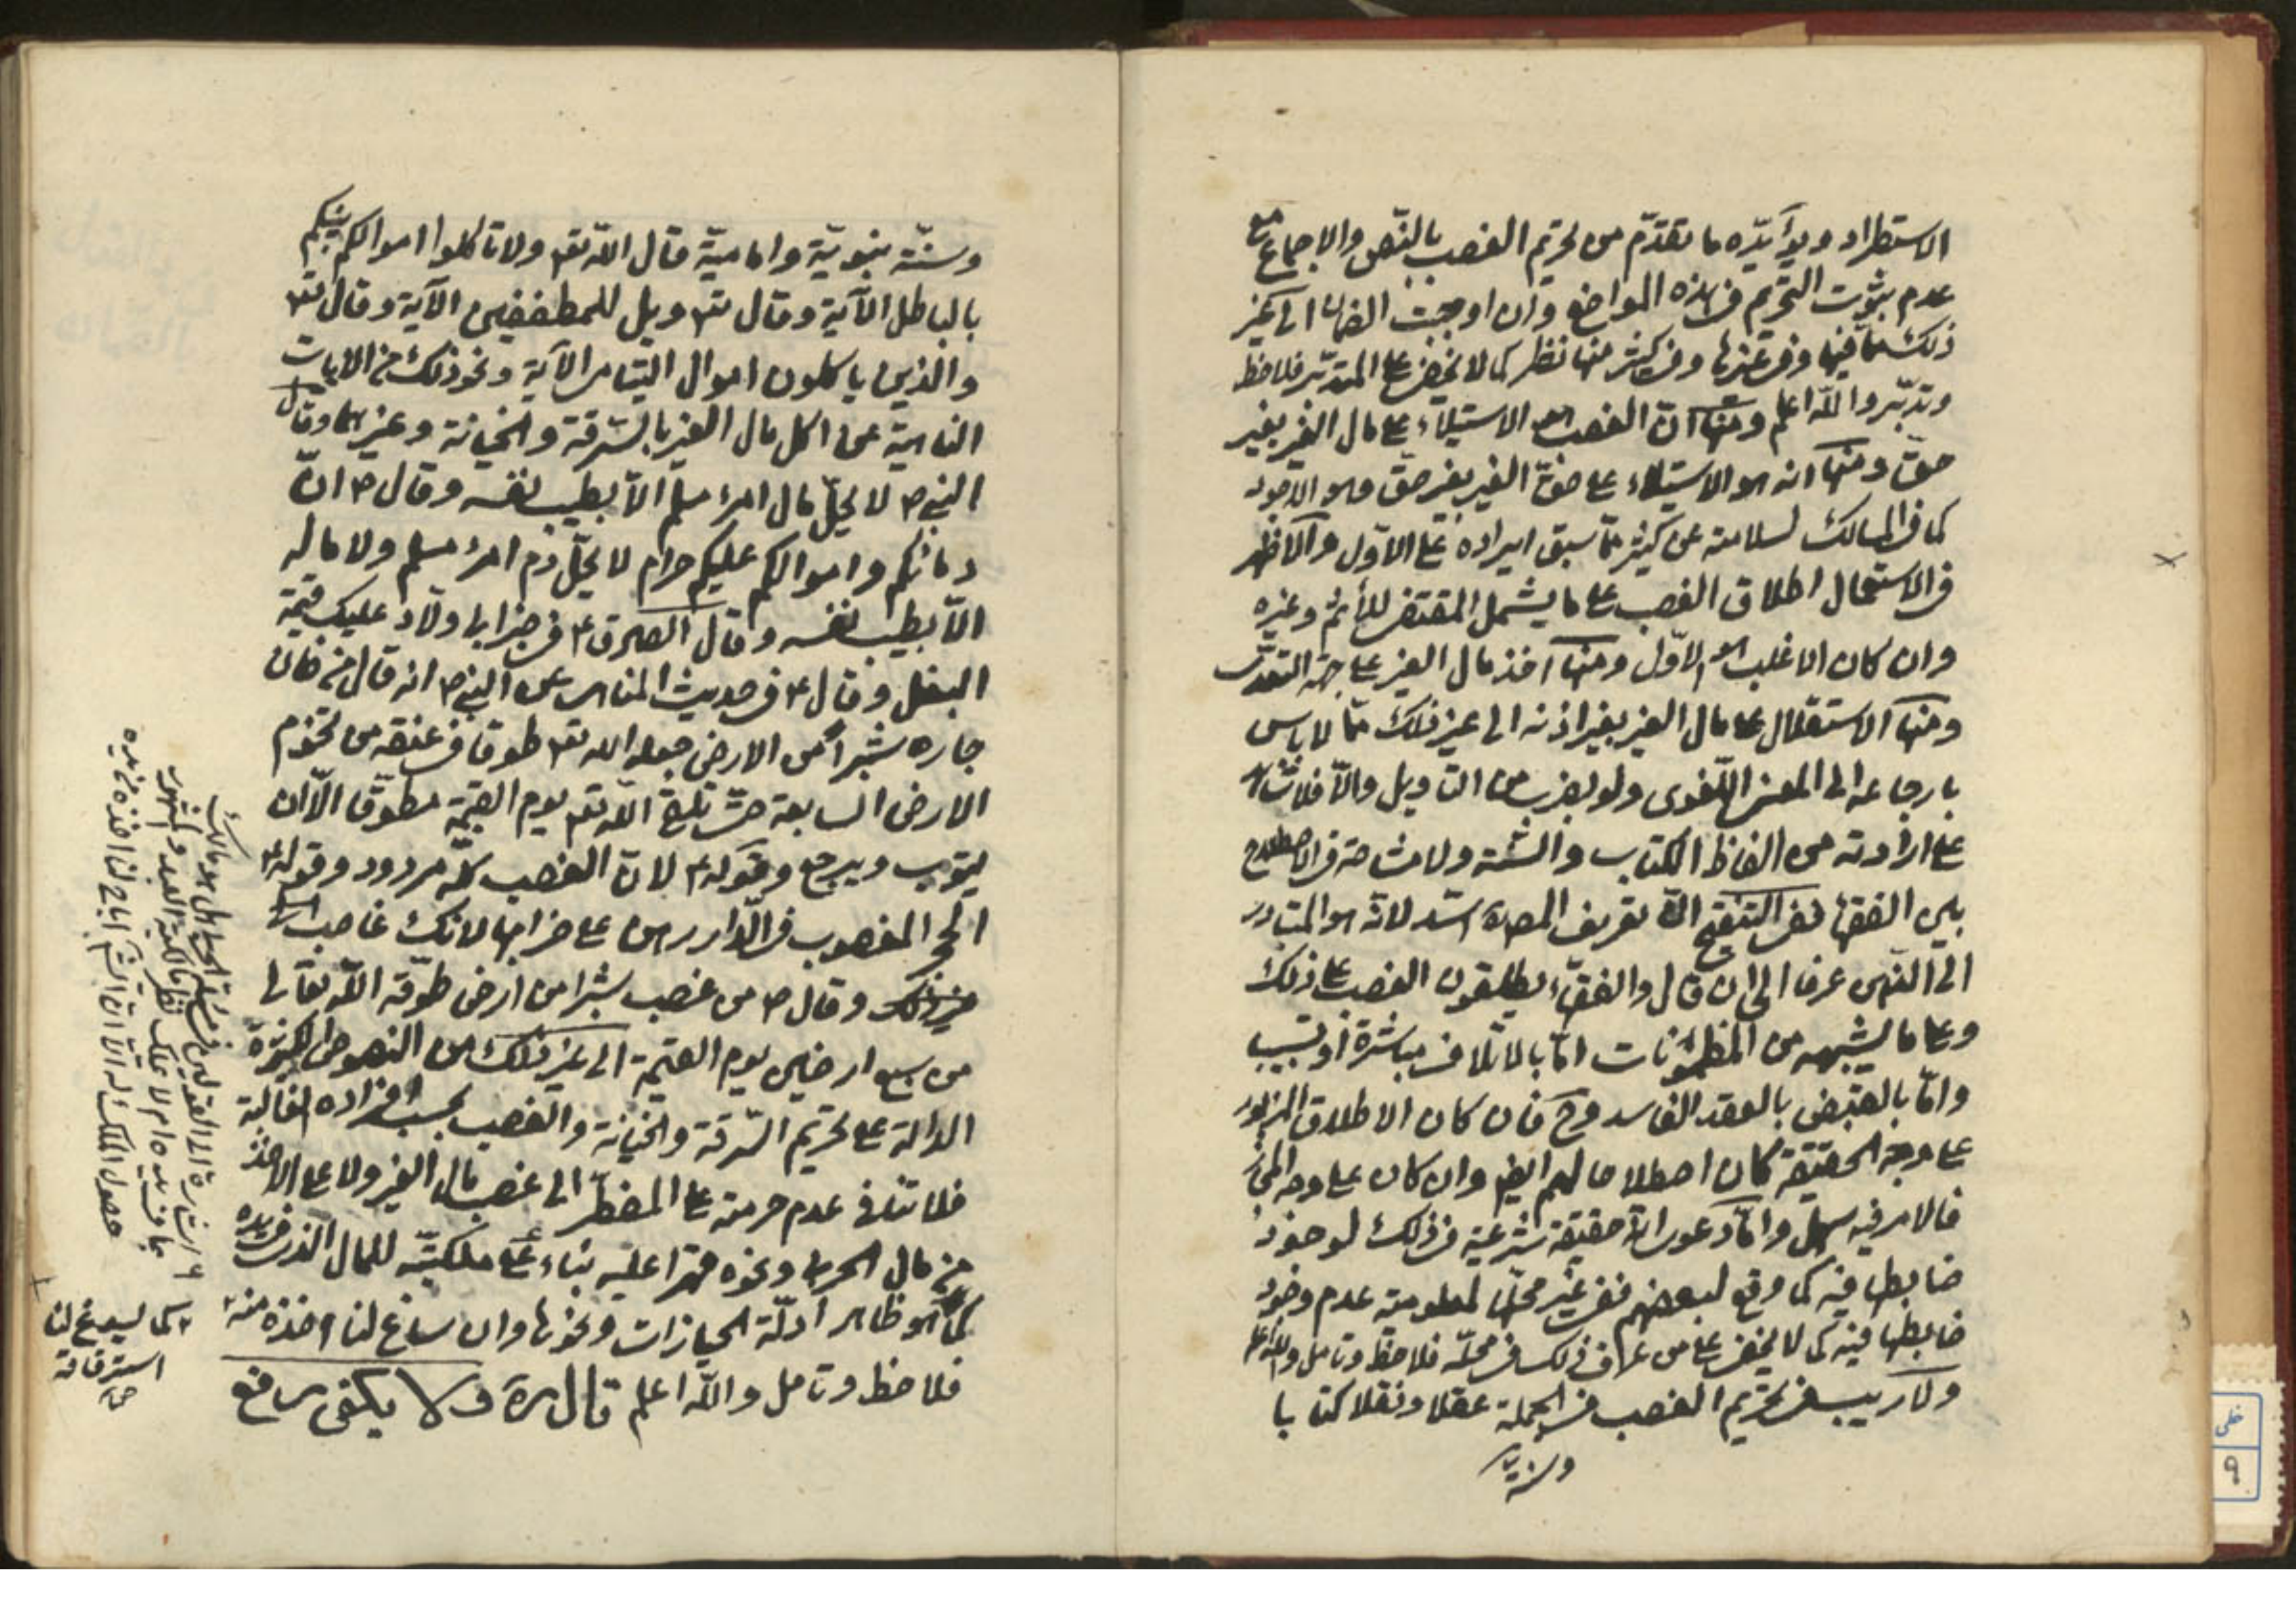 الاستطراد ويؤيّده ما تقدّم من تحريم الغصب بالنّص والاجماع مع
عدم ثبوت التحريم في هذه المواضع وان اوجبت الضمان الى غير
ذلك ممّا فيها وفي غيرها وفي كثير منها نظر كما لا يخفى على المتدبّر فلاحظ
وتدبّر والله اعلم ومنها انّ الغصب هو الاستيلاء على مال الغير بغير
حقّ ومنها انه هو الاستيلاء على حقّ الغير بغير حقّ وهو الاجود
كما في المسالك لسلامته عن كثير ممّا سبق ايراده على الاوّل والاظهر
في الاستعمال اطلاق الغصب على ما يشمل المقتضى للأثم وغيره
وان كان الاغلب هو الاوّل ومنها اخذ مال الغير على جهة التعدّى
ومنها الاستقلال على مال الغير بغير اذنه الى غير ذلك ممّا لا باس
بارجاعه الى المعنى اللّغوى ولو بضرب من التاويل والّا فلا شاهد
على ارادته من الفاظ الكتاب والسّنة ولا مشاحة في الاصطلاح
بين الفقهاء ففى التنقيح انّ تعريف المص ره اسدّ لانّه هو المتبادر
الى الفهم عرفا الى ان قال والفقهاء يطلقون الغصب على ذلك
وعلى ما يشبهه من المظمونات امّا بالاتلاف مباشرة او تسبيب
وامّا بالقبض بالعقد الفاسد وح فان كان الاطلاق المزبور
على وجه الحقيقة كان اصطلاحا لهم ايضا وان كان على وجه المجاز
فالامر فيه سهل وامّا دعوى انّه حقيقة شرعية في ذلك لوجود
ضابطها فيه كما وقع لبعضهم ففى غير محلّها لمعلومية عدم وجود
ضابطها فيه كما لا يخفى على من عرف ذلك في محلّه فلاحظ وتامل والله اعلم
ولا ريب في تحريم الغصب في الجملة عقلا ونقلا كتابا
وسنّة
وسنّة نبويّة واماميّة قال الله تعه ولا تاكلوا اموالكم بينكم
بالباطل الآية وقال تعه ويل للمطففين الآية وقال تعه
والذين ياكلون اموال اليتامى الآية ونحو ذلك من الايات
الناهية عن اكل مال الغير بالسّرقة والخيانة وغيرهما وقال
النبي ص لا يحلّ مال امرء مسلم الّا بطيب نفسه وقال ص انّ
دمائكم واموالكم عليكم حرام لا يحلّ دم امرء مسلم ولا ماله
الّا بطيب نفسه وقال الصادق ع في خبر ابى ولّاد عليك قيمة
البغل وقال ع في حديث المناهى عن النبي ص انه قال من خان
جاره شبرا من الارض جعله الله تعه طوقا في عنقه من تخوم
الارض السابعة حتّى يلقى الله تعه يوم القيمة مطوّقا الّا ان
يتوب ويرجع وقوله ع لانّ الغصب كلّه مردود وقوله ع
الحجر المغصوب في الدّار رهن على خرابها لانك غاصب
وقال ص من غصب شبرا من ارض طوّقه الله تعالى
من سبع ارضين يوم القيمة الى غير ذلك من النصوص الكثيرة
الدالة على تحريم السّرقة والخيانة والغصب بحسب افراده الغالبة
فلا تنافى عدم حرمته على المضطرّ الى غصب مال الغير ولا على الاخذ
من مال الحربى ونحوه قهرا عليه بناء على ملكيّته للمال الذى في يده
كما هو ظاهر ادلّة الحيازات ونحوها وان ساغ لنا اخذه منه
فلاحظ وتامل والله اعلم قال ره ولا يكفى رفع
كما يسوغ لنا
استرقاقه